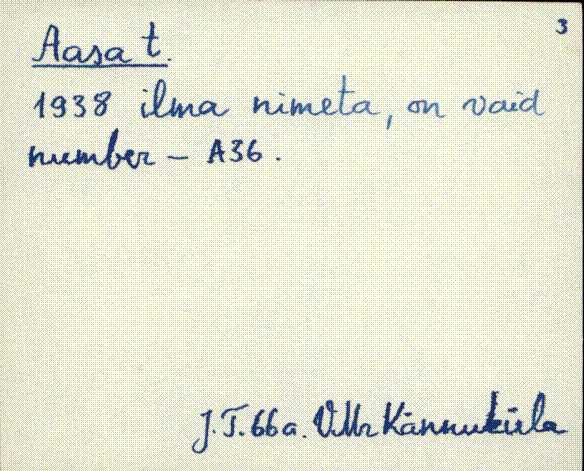 3
Aasa t.
1938 ilma nimeta, on vaid
number - A36.
J.T. 66a. VMr Kännuküla